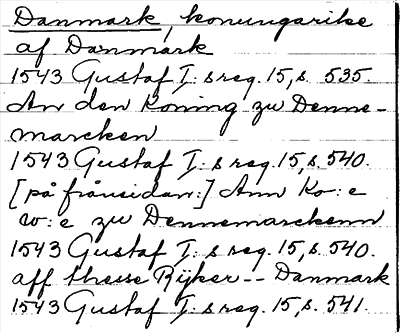 Danmark, konungarike
af Danmark
1543 Gustaf I: s reg. 15, s. 535.
An den Koning zu Denne-
marcken
1543 Gustaf I: s reg. 15, s. 540.
[på frånsidan:] Ann Ko: e
w: e zu Dennemarckenn
1543 Gustaf I: s reg. 15, s. 540.
aff thesse Rijker -- Danmark
1543 Gustaf I: s reg. 15, s. 541.